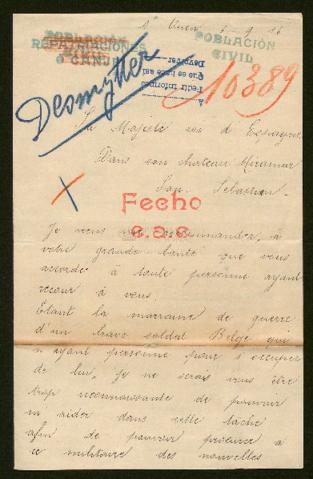 POBLACIÓN
CIVIL
REPATRIACIONES
ó CANJE
POBLACIÓN
CIVIL
A
Pedir informes
Que se hace así
Devolver
10389
Desmytter
Sa Majesté roi d'Espagne
Dans son chateau Miramar
San Sebastien
Fecho
Je vous recommander, à
votre grande bonté que vous
accordé à toute personne ayant
recour à vous.
Etant la marraine de guerre
d'un brave soldat Belge qui
n'ayant personne pour s'occuper
de lui, je ne serais vous être
trop reconnaissante de pouvoir
m'aider dans cette tâche
afin de pouvoir procurer à
ce militaire des nouvelles